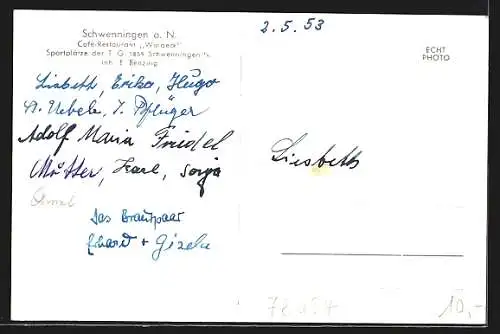 Schwenningen a. N.
Café-Restaurant „Waldeck"
Sportplätze der T. G. 1859 Schwenningen/N.
Inh. E. Benzing
2. 5. 53
ECHT
PHOTO
Lisbeth, Erika, Hugo
A. Uebele, Pflüger
Adolf Maria Friedel
Mutter, Karl, Sonja
das Brautpaar
Erhard + Gisela
Liesbeth
10,-